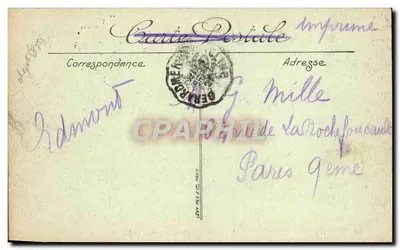 Carte Postale Imprimé
Correspondance
Adresse
Edmont
G. Mille
rue de La Rochefoucauld
Paris 9eme
GERARDMER
CPARAMA
LÉVY FILS & Cie, PARIS